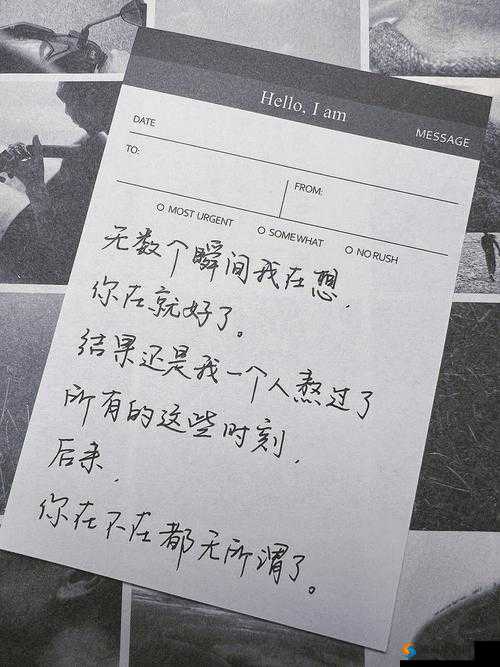 Hello, I am
MESSAGE
DATE
TO:
FROM:
MOST URGENT
SOMEWHAT
NO RUSH
无数个瞬间我在想,
你在就好了。
结果还是我一个人熬过了
所有的这些时刻,
后来,
你在不在都无所谓了。